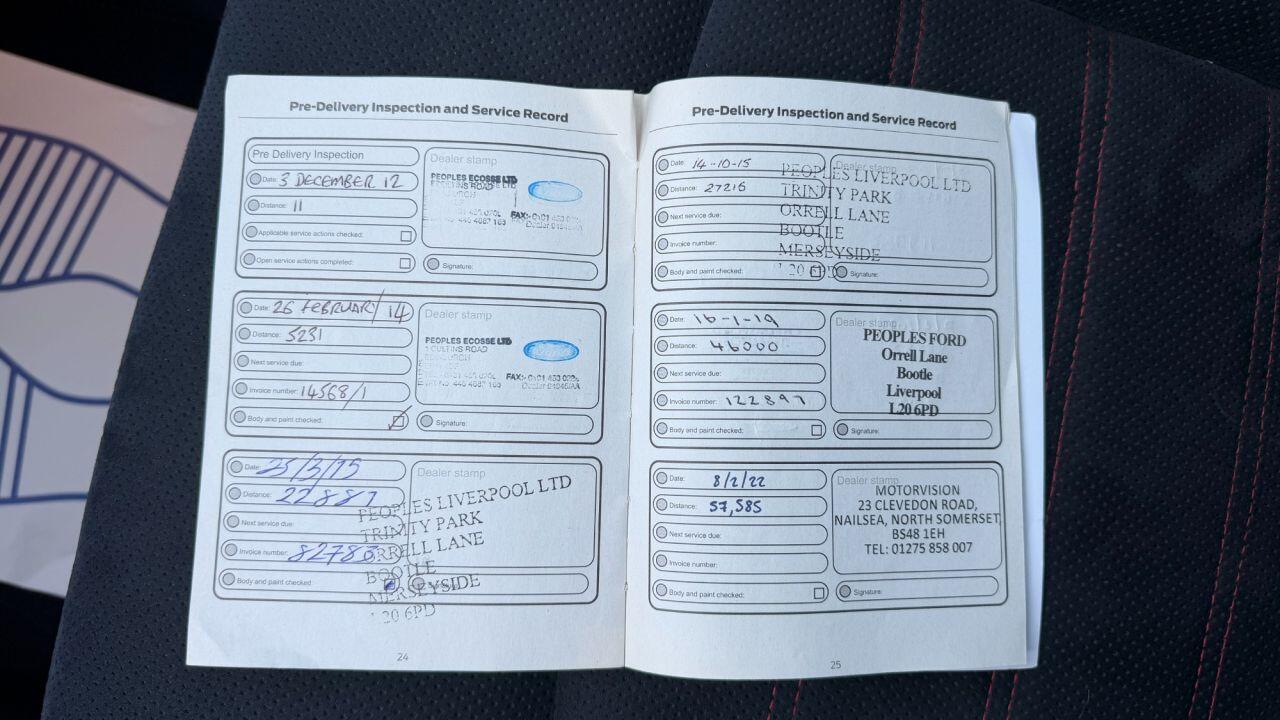 Pre-Delivery Inspection and Service Record
Pre Delivery Inspection
Date: 3 DECEMBER 12
Distance: 11
Applicable service actions checked:
Open service actions completed:
Dealer stamp
PEOPLES ECOSSE LTD
ROAD
FAX:-
Signature:
Date: 26 FEBRUARY/14
Distance: 5231
Next service due:
Invoice number: 14568/1
Body and paint checked:
Dealer stamp
PEOPLES ECOSSE LTD
CULTINS ROAD
FAX:-
Signature:
Date:
Distance: 22887
Next service due:
Invoice number:
Body and paint checked:
Dealer stamp
PEOPLES LIVERPOOL LTD
TRINITY PARK
ORRELL LANE
BOOTLE
MERSEYSIDE
L20 6PD
24
Pre-Delivery Inspection and Service Record
Date: 14-10-15
Distance: 27216
Next service due:
Invoice number:
Body and paint checked:
Dealer stamp
PEOPLES LIVERPOOL LTD
TRINITY PARK
ORRELL LANE
BOOTLE
MERSEYSIDE
L20 6PD
Signature:
Date: 16-1-19
Distance: 46000
Next service due:
Invoice number: 122897
Body and paint checked:
Dealer stamp
PEOPLES FORD
Orrell Lane
Bootle
Liverpool
L20 6PD
Signature:
Date: 8/2/22
Distance: 57,585
Next service due:
Invoice number:
Body and paint checked:
Dealer stamp
MOTORVISION
23 CLEVEDON ROAD,
NAILSEA, NORTH SOMERSET,
BS48 1EH
TEL: 01275 858 007
Signature:
25